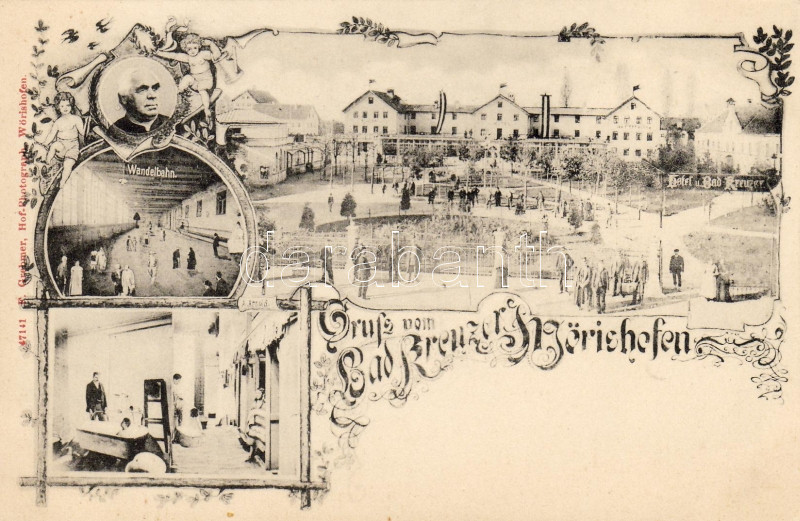 Wandelbahn.
Hotel u. Bad Kreuzer
Gruß vom
Bad Kreuzer, Wörishofen
47141 F. Grebmer, Hof-Photograph, Wörishofen.
darabanth